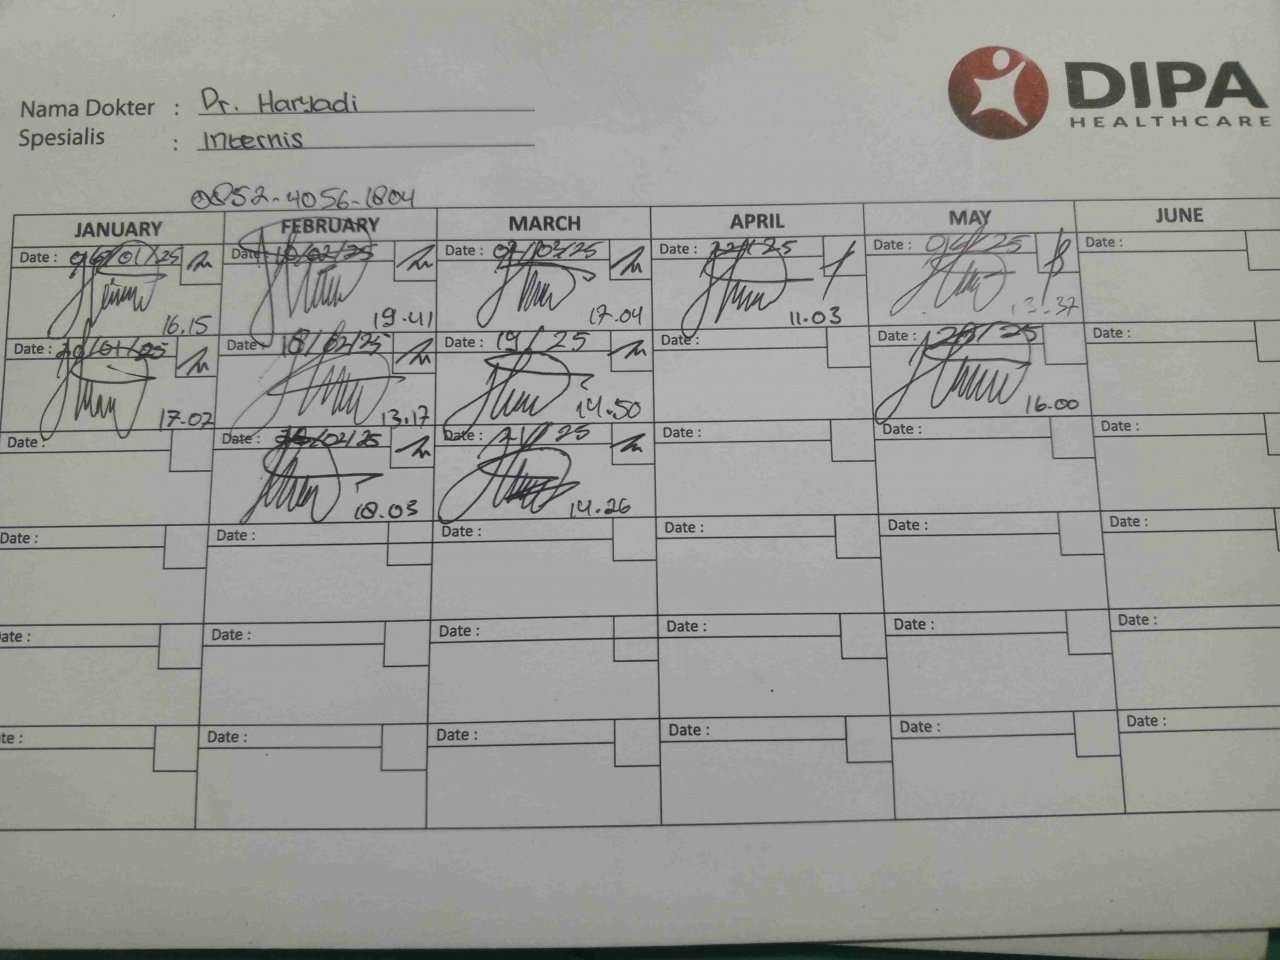 DIPA
HEALTHCARE
Nama Dokter : Dr. Haryadi
Spesialis : Internis
0852-4056-1804
JANUARY FEBRUARY MARCH APRIL MAY JUNE
Date : /01/25 Date : 10/02/25 Date : /25 Date : 22/ /25 Date : /25 Date :
16.15 19.41 17.04 11.03 13.37
Date : /01/25 Date : 18/02/25 Date : 19/ 25 Date : Date : 28/ 25 Date :
17.02 13.17 14.50 16.00
Date : Date : /02/25 Date : 21/ 25 Date : Date : Date :
18.03 14.26
Date : Date : Date : Date : Date : Date :
ate : Date : Date : Date : Date : Date :
te : Date : Date : Date : Date : Date :